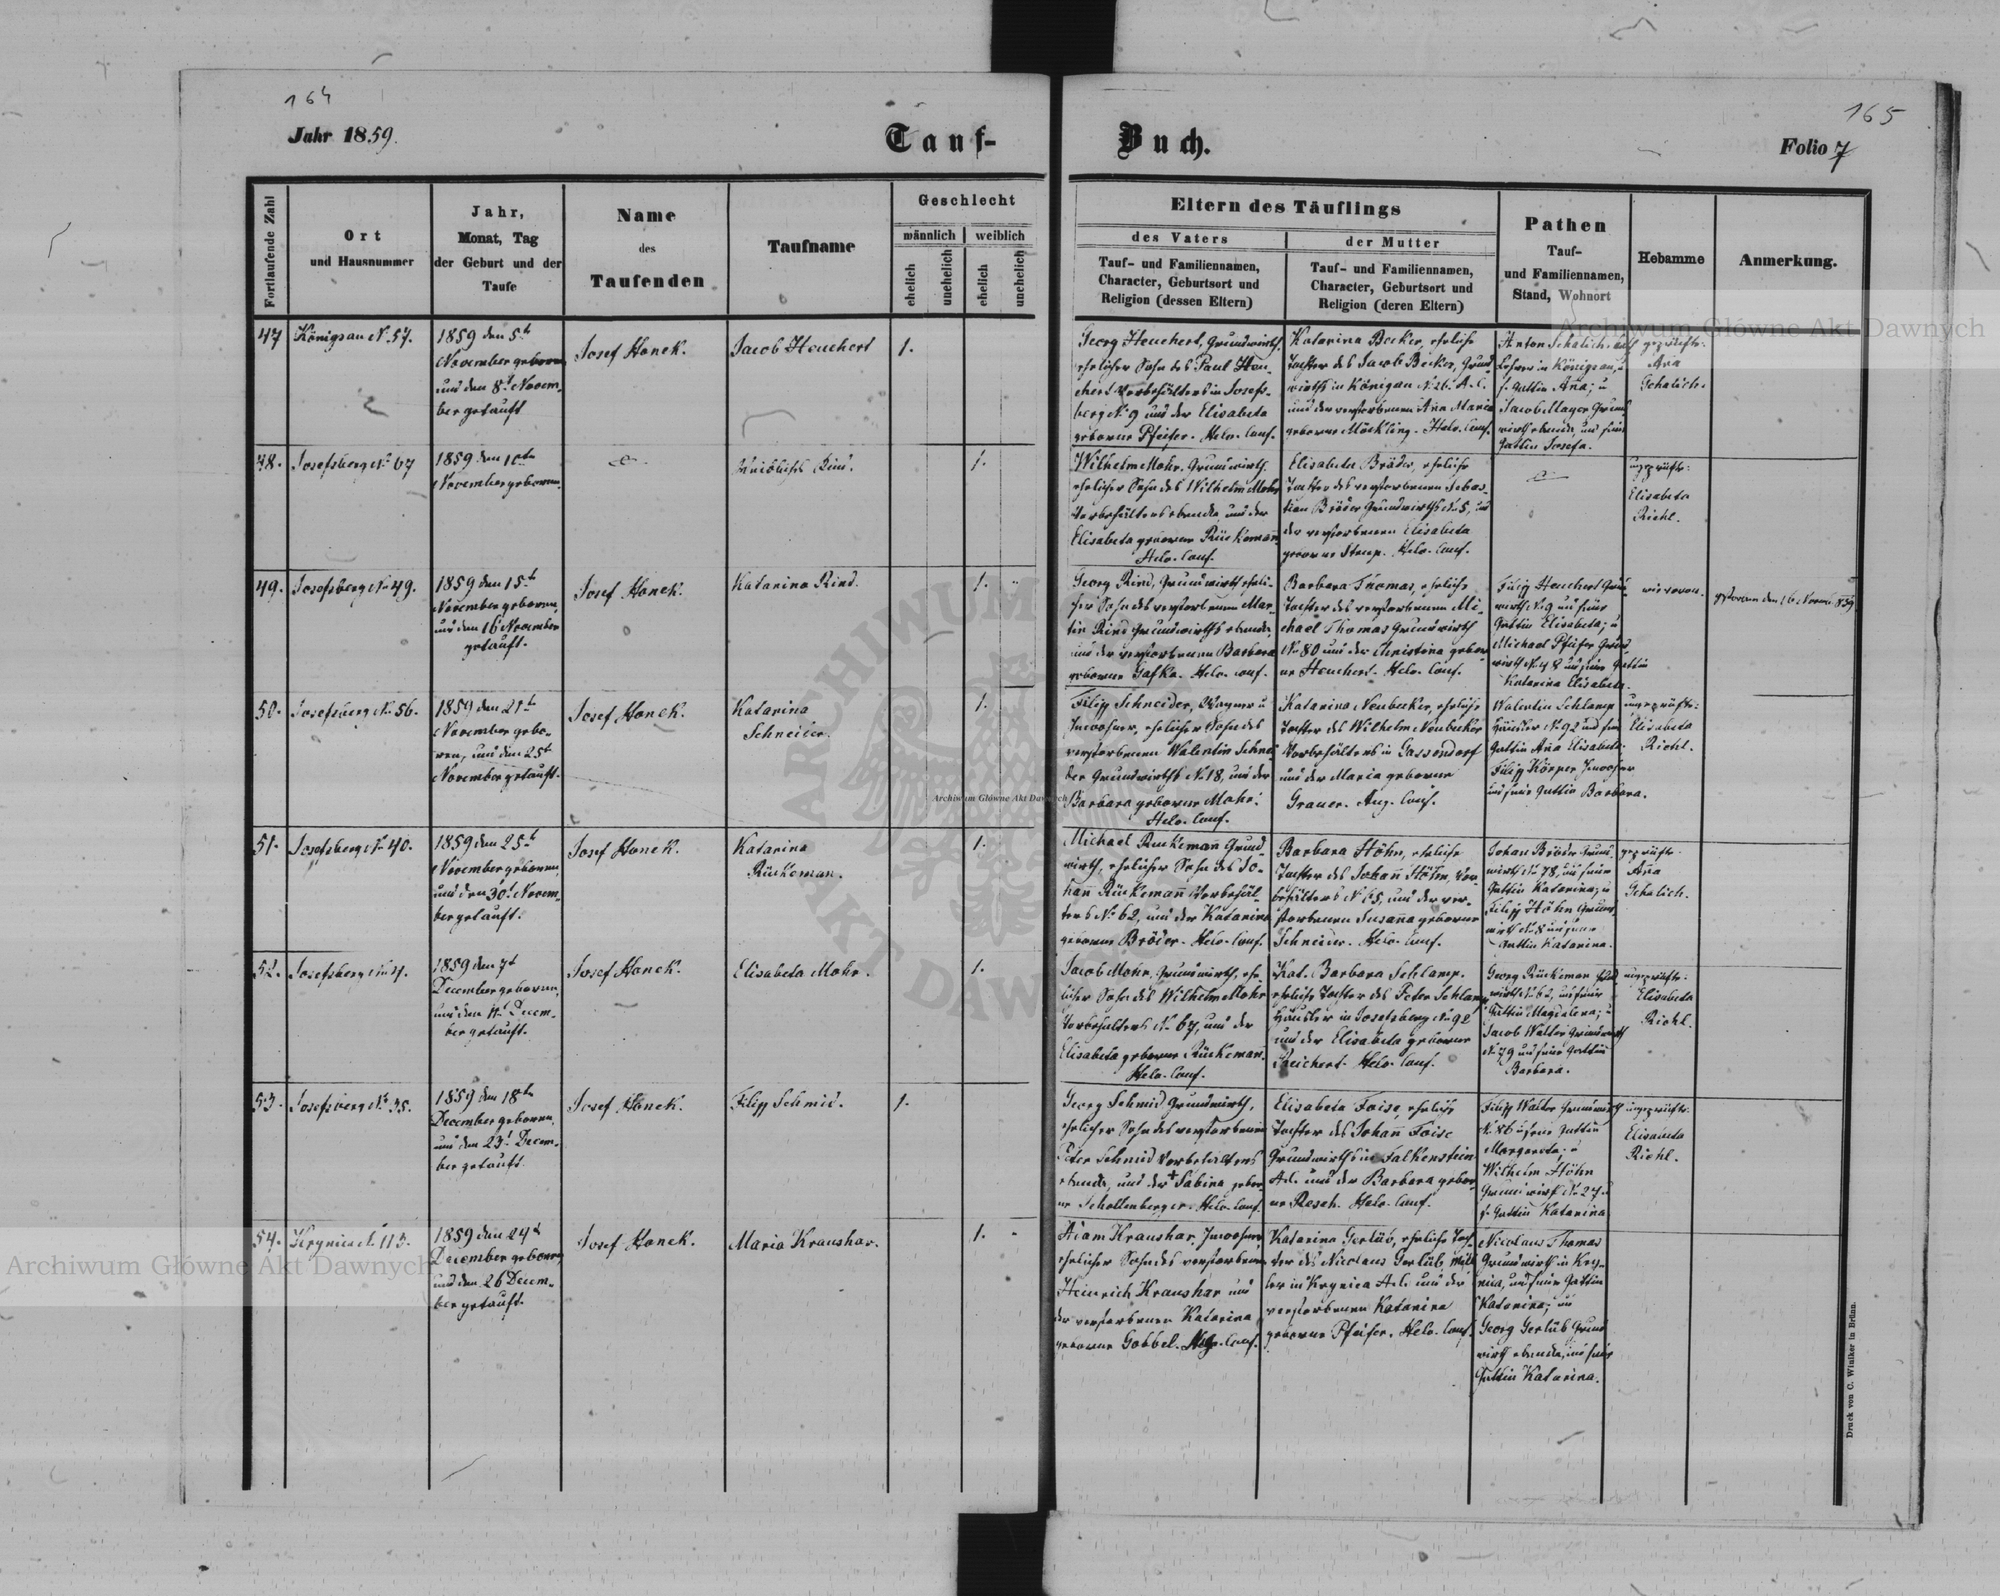 164
165
Jahr 1859.
Tauf-
Buch.
Folio 7
Fortlaufende Zahl
Ort
und Hausnummer
Jahr,
Monat, Tag
der Geburt und der
Taufe
Name
des
Taufenden
Taufname
Geschlecht
männlich
weiblich
ehelich
unehelich
ehelich
unehelich
Eltern des Täuflings
des Vaters
der Mutter
Tauf- und Familiennamen,
Character, Geburtsort und
Religion (dessen Eltern)
Tauf- und Familiennamen,
Character, Geburtsort und
Religion (deren Eltern)
Pathen
Tauf-
und Familiennamen,
Stand, Wohnort
Hebamme
Anmerkung.
47
Königsau No 57.
1859 den 5t
November geboren
und den 8t Novem-
ber getauft
Josef Hanek.
Jacob Heuchert
1.
Georg Heuchert, Grundwirth,
ehelicher Sohn des Paul Heu-
chert Vorbehälters in Josefs-
berg No 9 und der Elisabeta
geborne Pfeifer. Helv. Conf.
Katarina Becker, eheliche
Tochter des Jacob Becker, Grund-
wirths in Königsau No 26. A. C.
und der verstorbenen Ana Maria
geborne Möckling. Helv. Conf.
Anton Schalich,
Lehrer in Königsau, u
s. Gattin Ana; u
Jacob Mayer Grund
wirth ebenda und seine
Gattin Josefa.
geprüfte:
Ana
Schalich.
48.
Josefsberg No 67
1859 den 10ten
November geboren.
Weibliches Kind.
1.
Wilhelm Mohr, Grundwirth,
ehelicher Sohn des Wilhelm Mohr
Vorbehälters ebenda, und der
Elisabeta geborne Rückeman
Helv. Conf.
Elisabeta Bröder, eheliche
Tochter des verstorbenen Sebas-
tian Bröder Grundwirths No 5, und
der verstorbenen Elisabeta
geborne Stemp. Helv. Conf.
ungeprüfte:
Elisabeta
Riehl.
49.
Josefsberg No 49.
1859 den 15t
November geboren,
und den 16t November
getauft.
Josef Hanek.
Katarina Rind.
1.
Georg Rind, Grundwirth, eheli-
cher Sohn des verstorbenen Mar-
tin Rind Grundwirths ebenda,
und der verstorbenen Barbara
geborne Gafka. Helv. Conf.
Barbara Thomas, eheliche
Tochter des verstorbenen Mi-
chael Thomas Grundwirth
No 80 und der Christina gebor-
ne Heuchert. Helv. Conf.
Filipp Heuchert Grund
wirth No 9 und seine
Gattin Elisabeta; u
Michael Pfeifer Grund
wirth No 48 und seine Gattin
Katarina Elisabeta.
wie voren.
gestorben den 26 Novemb. 859
50.
Josefsberg No 56.
1859 den 21t
November gebo-
ren, und den 25t
November getauft.
Josef Hanek.
Katarina
Schneider.
1.
Filipp Schneider, Wagner u
Inwohner, ehelicher Sohn des
verstorbenen Walentin Schnei-
der Grundwirths No 18, und der
Barbara geborne Mohr.
Helv. Conf.
Katarina Neubecker, eheliche
Tochter des Wilhelm Neubecker
Vorbehälters in Gassendorf
und der Maria geborne
Grauer. Aug. Conf.
Walentin Schlamp
Häusler No 92 und seine
Gattin Ana Elisabeta.
Filipp Körper Inwohner
und seine Gattin Barbara.
ungeprüfte:
Elisabeta
Riehl.
51.
Josefsberg No 40.
1859 den 25t
November geboren,
und den 30t Novem-
ber getauft.
Josef Hanek.
Katarina
Rückeman.
1.
Michael Rückeman Grund-
wirth, ehelicher Sohn des Jo-
han Rückeman Vorbehäl-
ters No 62, und der Katarina
geborne Bröder. Helv. Conf.
Barbara Höhn, eheliche
Tochter des Johan Höhn, Vor-
behälters No 65, und der ver-
storbenen Susana geborne
Schneider. Helv. Conf.
Johan Bröder Grund
wirth No 78, und seine
Gattin Katarina; u
Filipp Höhn Grund
wirth No 8 und seine
Gattin Katarina.
geprüfte
Ana
Schalich.
52.
Josefsberg No 4.
1859 den 7t
December geboren,
und den 11t Decem-
ber getauft.
Josef Hanek.
Elisabeta Mohr.
1.
Jacob Mohr, Grundwirth, ehe
licher Sohn des Wilhelm Mohr
Vorbehälters No 67, und der
Elisabeta geborne Rückeman.
Helv. Conf.
Kat. Barbara Schlamp.
eheliche Tochter des Peter Schlamp
Häusler in Josefsberg No 92
und der Elisabeta geborne
Reichert. Helv. Conf.
Georg Rückeman Grund
wirth No 62, und seine
Gattin Magdalena; u
Jacob Walter Grundwirth
No 79 und seine Gattin
Barbara.
ungeprüfte:
Elisabeta
Riehl.
53.
Josefsberg No 35.
1859 den 18ten
December geboren,
und den 23t Decem-
ber getauft.
Josef Hanek.
Filipp Schmid.
1.
Georg Schmid Grundwirth,
ehelicher Sohn des verstorbenen
Peter Schmid Vorbehälters
ebenda, und der + Sabina gebor
ne Schollenberger. Helv. Conf.
Elisabeta Faise, eheliche
Tochter des Johan Faise
Grundwirths in Falkenstein
A.C. und der Barbara gebor-
ne Resch. Helv. Conf.
Filipp Walter Grundwirth
No 86 u seine Gattin
Margareta; u
Wilhelm Höhn
Grundwirth No 27 u
s. Gattin Katarina
ungeprüfte:
Elisabeta
Riehl.
54.
Krynica No 113.
1859 den 24t
December geboren,
und den 26 Decem-
ber getauft.
Josef Hanek.
Maria Kraushar.
1.
Adam Kraushar, Inwohner,
ehelicher Sohn des verstorbenen
Heinrich Kraushar und
der verstorbenen Katarina
geborne Gobbel. Helv. Conf.
Katarina Gerlüb, eheliche Toch-
ter des Nicolaus Gerlüb, Mül
ler in Krynica A.C. und der
verstorbenen Katarina
geborne Pfeifer. Helv. Conf.
Nicolaus Thomas
Grundwirth in Kry-
nica, und seine Gattin
Katarina; und
Georg Gerlüb Grund
wirth ebenda, und seine
Gattin Katarina.
Druck von C. Winiker in Brünn.
Archiwum Główne Akt Dawnych
Archiwum Główne Akt Dawnych
Archiwum Główne Akt Dawnych
ARCHIWUM
AKT DAWN